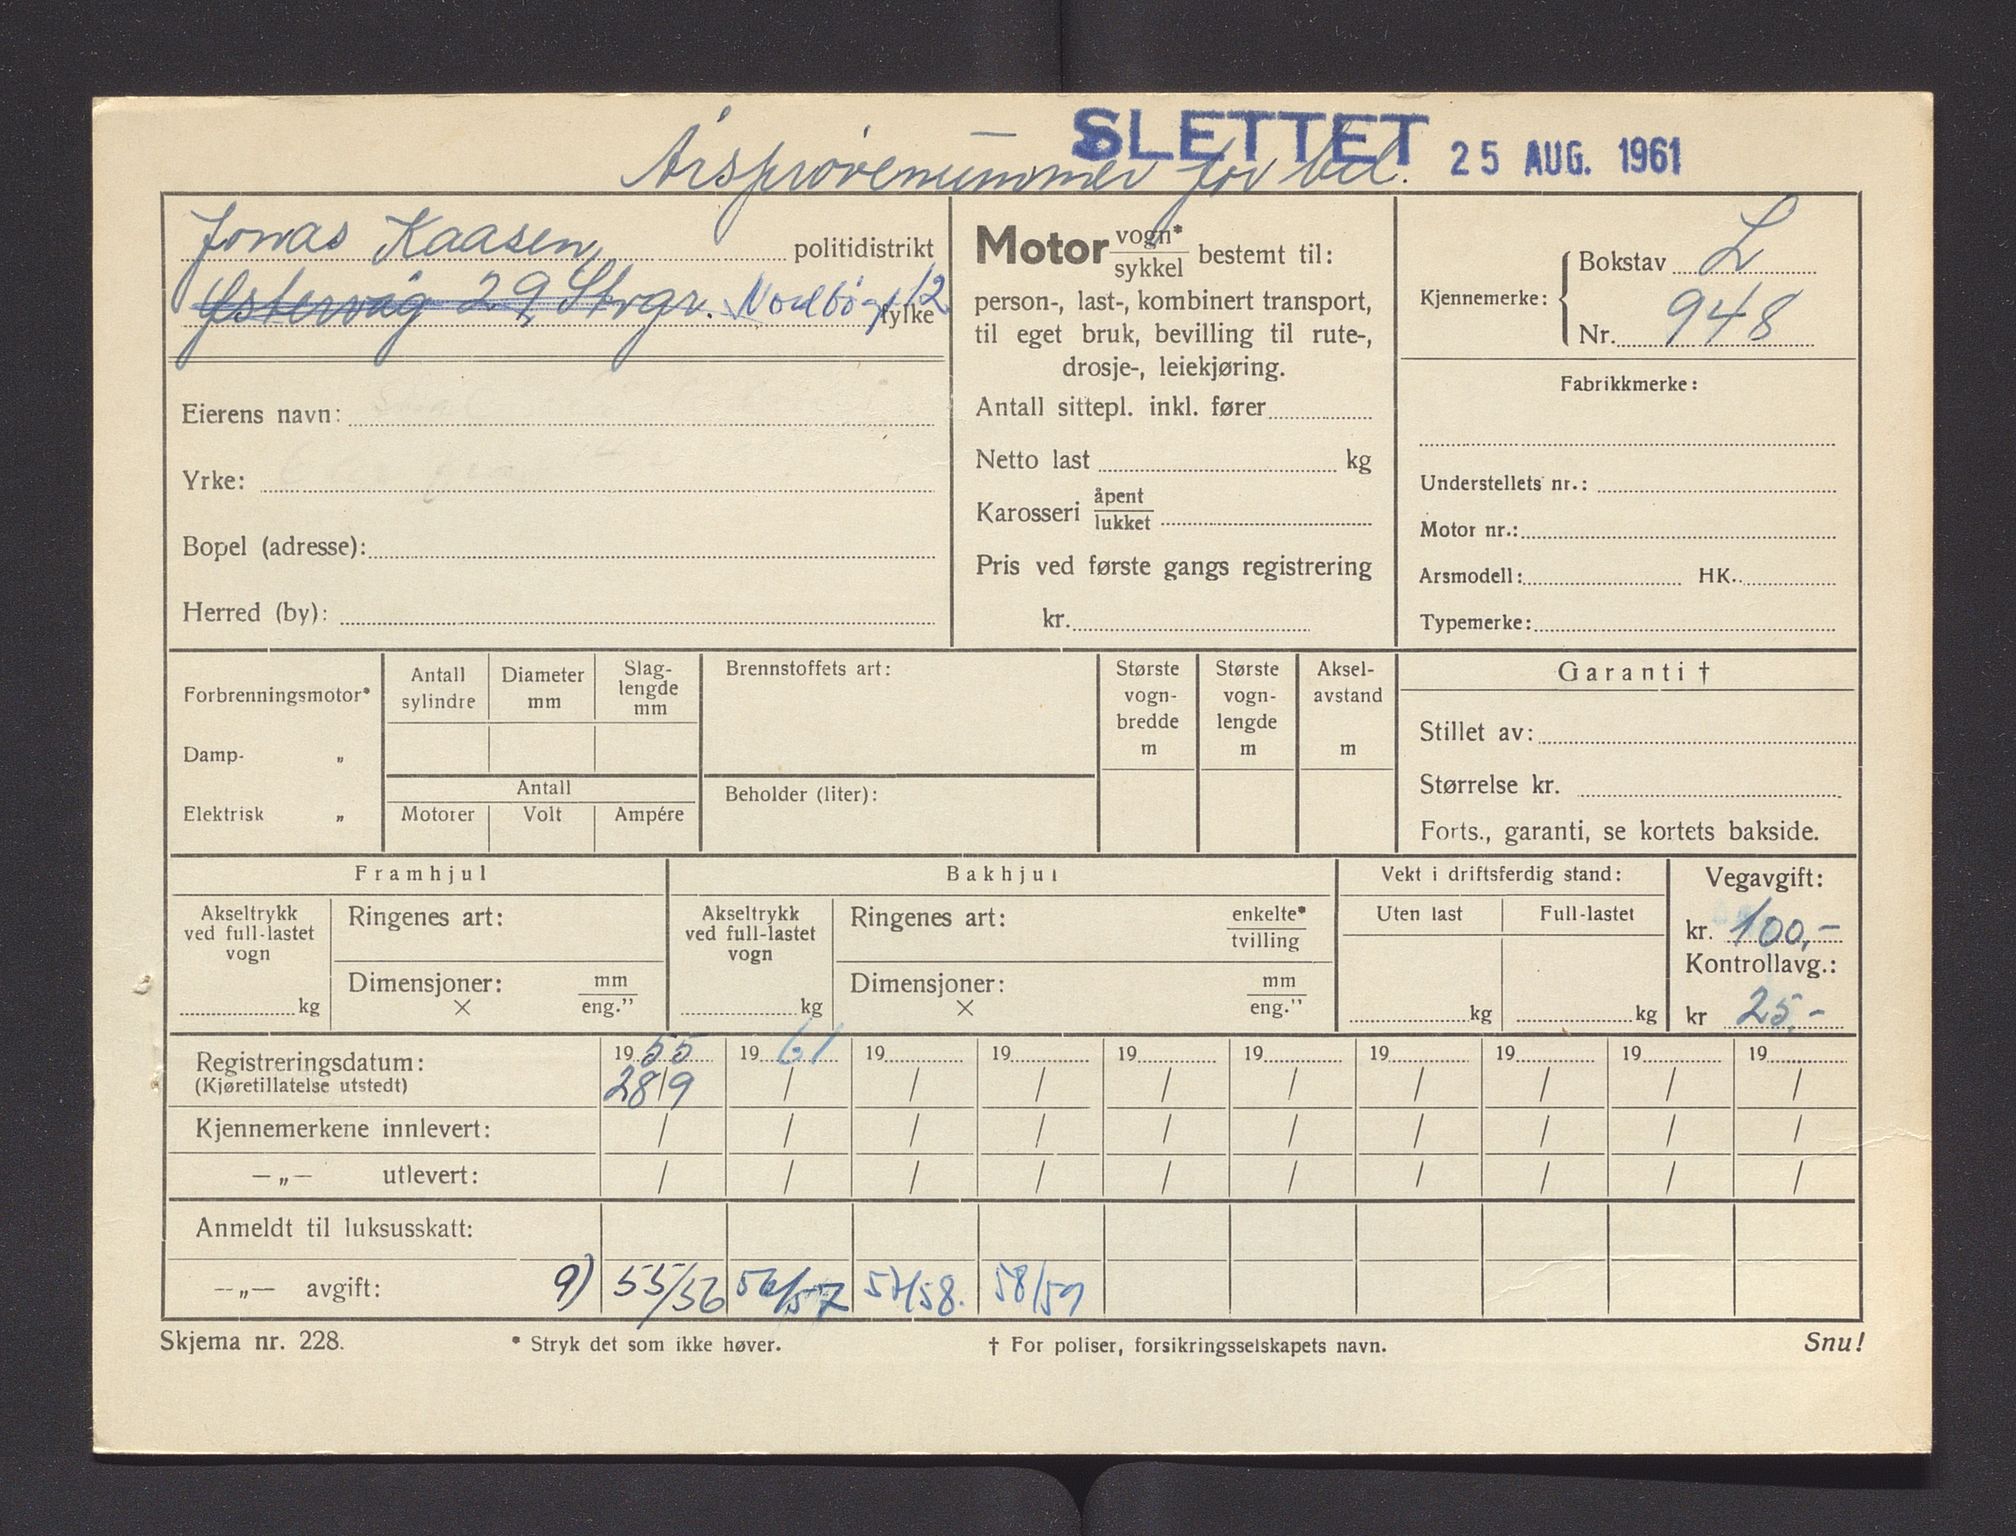 SLETTET 25 AUG. 1961
Årsprøvenummer for bil.
Jonas Kaasen, politidistrikt
Østervåg 29, Stvgr. Nordbøgt 12 fylke
Eierens navn:
Yrke:
Bopel (adresse):
Herred (by):
Motor vogn* / sykkel bestemt til:
person-, last-, kombinert transport,
til eget bruk, bevilling til rute-,
drosje-, leiekjøring.
Antall sittepl. inkl. fører
Netto last kg
Karosseri åpent / lukket
Pris ved første gangs registrering
kr.
Kjennemerke: Bokstav L
Nr. 948
Fabrikkmerke:
Understellets nr.:
Motor nr.:
Arsmodell: HK.
Typemerke:
Forbrenningsmotor*
Damp- „
Elektrisk „
Antall sylindre
Diameter mm
Slag-lengde mm
Antall
Motorer Volt Ampére
Brennstoffets art:
Beholder (liter):
Største vogn-bredde m
Største vogn-lengde m
Aksel-avstand m
Garanti †
Stillet av:
Størrelse kr.
Forts., garanti, se kortets bakside.
Framhjul
Akseltrykk
ved full-lastet
vogn
kg
Ringenes art:
Dimensjoner: mm
× eng.”
Bakhjul
Akseltrykk
ved full-lastet
vogn
kg
Ringenes art: enkelte* / tvilling
Dimensjoner: mm
× eng.”
Vekt i driftsferdig stand:
Uten last Full-lastet
kg kg
Vegavgift:
kr. 100,-
Kontrollavg.:
kr 25,-
Registreringsdatum: 19 55 19 61 19 19 19 19 19 19 19 19
(Kjøretillatelse utstedt) 28/9 / / / / / / / / /
Kjennemerkene innlevert: / / / / / / / / / /
—„— utlevert: / / / / / / / / / /
Anmeldt til luksusskatt:
—„— avgift: 9) 55/56 56/57 57/58. 58/59
Skjema nr. 228. * Stryk det som ikke høver. † For poliser, forsikringsselskapets navn. Snu!